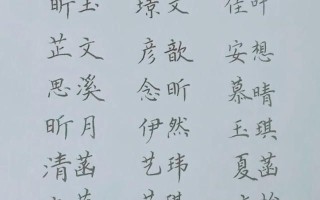 昕玉 璟文 佳叶
芷文 彦歆 安想
思溪 念昕 慕晴
昕月 伊然 玉琪
清菡 艺玮 夏菡